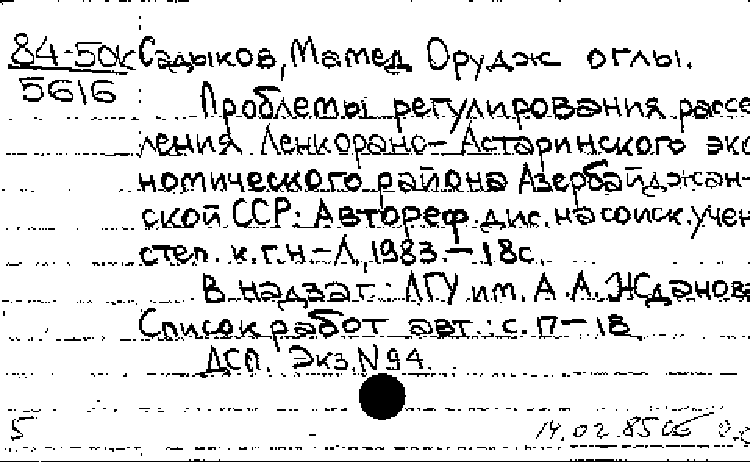 84-50к Садыков, Мамед Орудж оглы.
5616
Проблемы регулирования рассе
ления Ленкорано-Астаринского эко
номического района Азербайджан-
ской ССР: Автореф. дис. на соиск. учен
степ. к.г.н - Л, 1983. - 18с.
В надзаг: ЛГУ им. А.А. Жданова
Список работ авт.: с. 17-18
ДСП. Экз. N 94.
5
14.02.85